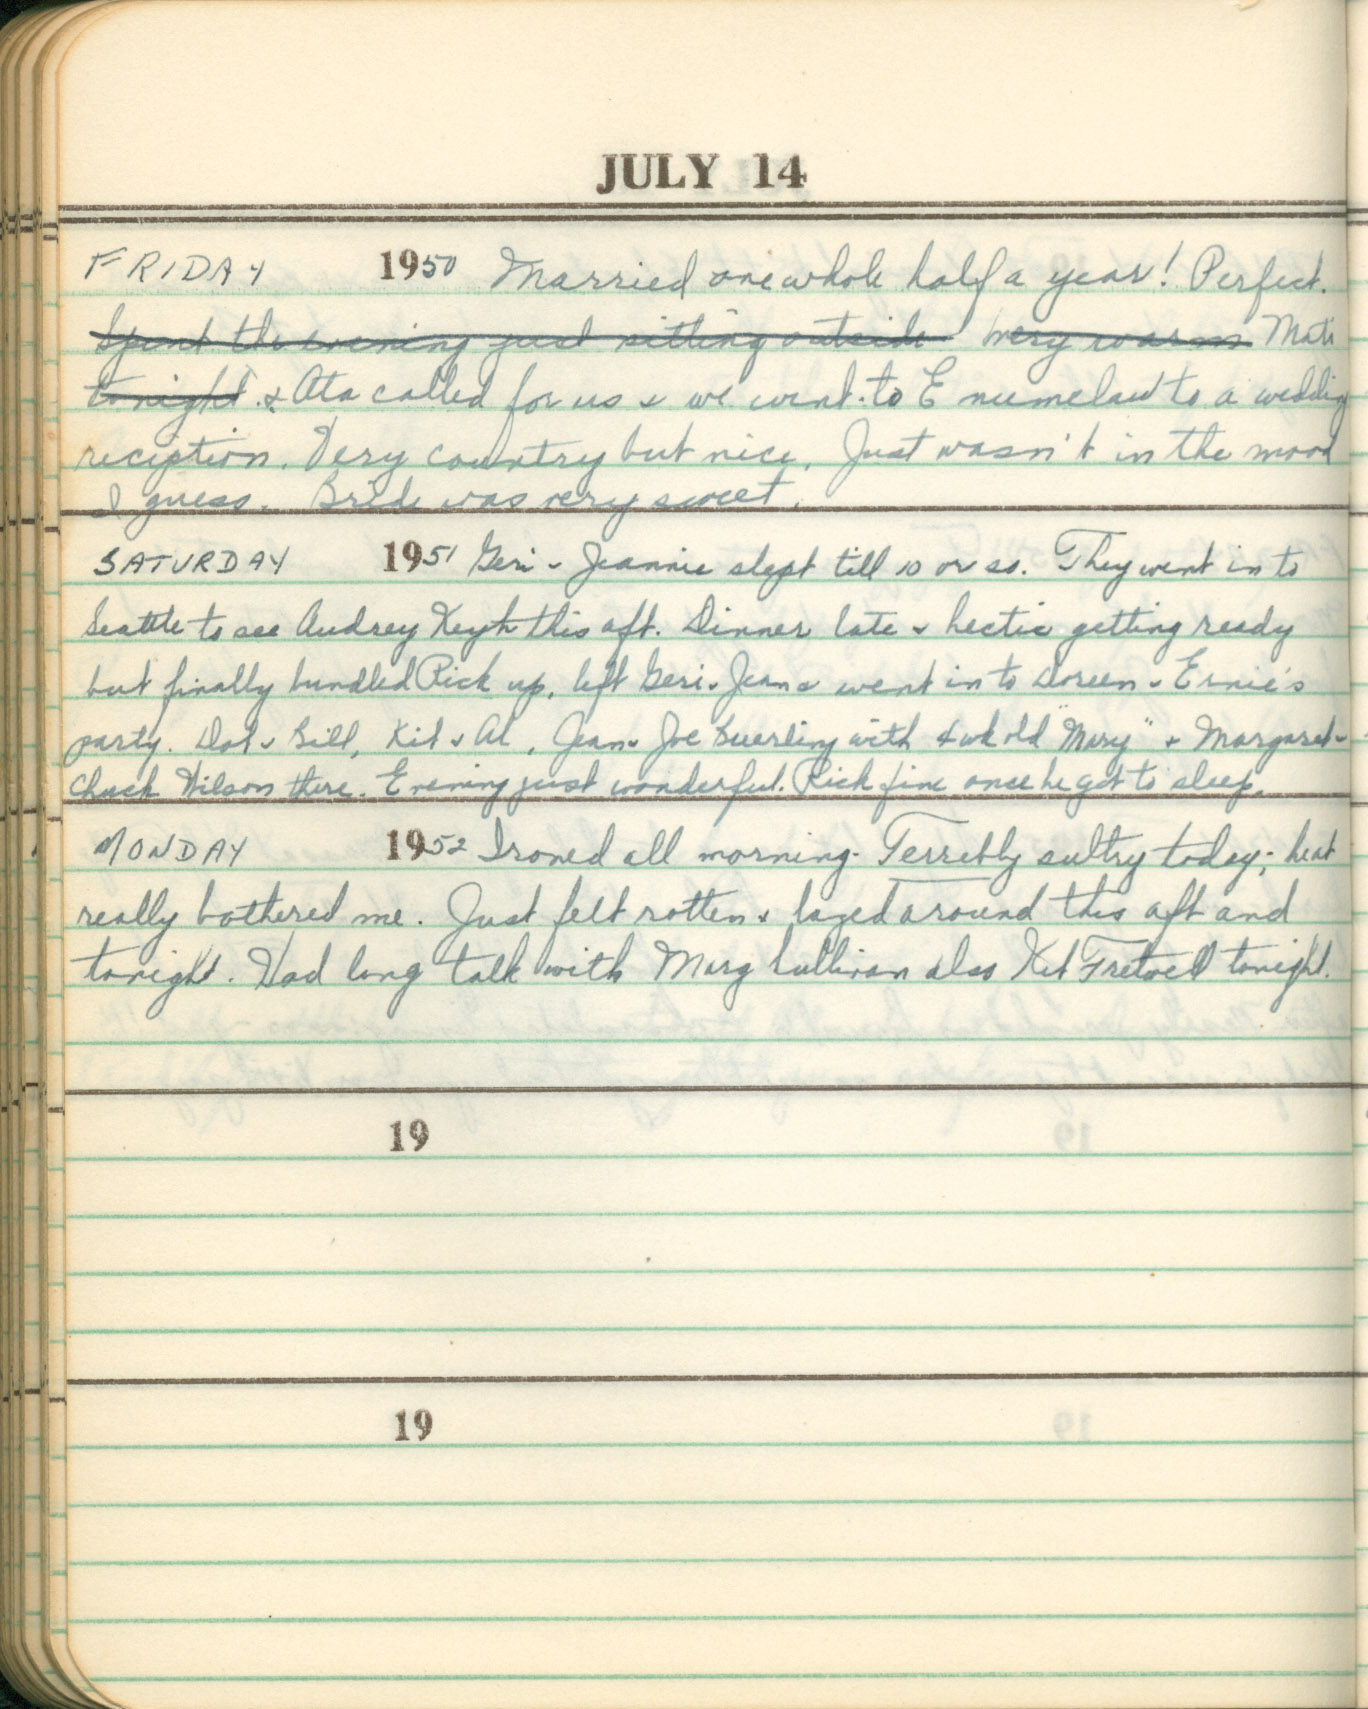 JULY 14
FRIDAY 1950 Married one whole half a year! Perfect.
Spent the evening just sitting outside very warm
tonight. & Ata called for us & we went to Enumclaw to a wedding
reception. Very country but nice. Just wasn't in the mood
I guess. Bride was very sweet.
SATURDAY 1951 Geri & Jeannie slept till 10 or so. They went in to
Seattle to see Audrey this aft. Dinner late & hectic getting ready
but finally bundled Rick up, left Geri & Jean & went in to Doreen & Ernie's
party. Dot & Bill, Kit & Al, Jean & Joe with 4 wk old "Mary" & Margaret &
Chuck Wilson there. Evening just wonderful. Rick fine once he got to sleep.
MONDAY 1952 Ironed all morning. Terribly sultry today; heat
really bothered me. Just felt rotten & lazed around this aft and
tonight. Had long talk with Marg Sullivan also Kit Fretwell tonight.
19
19